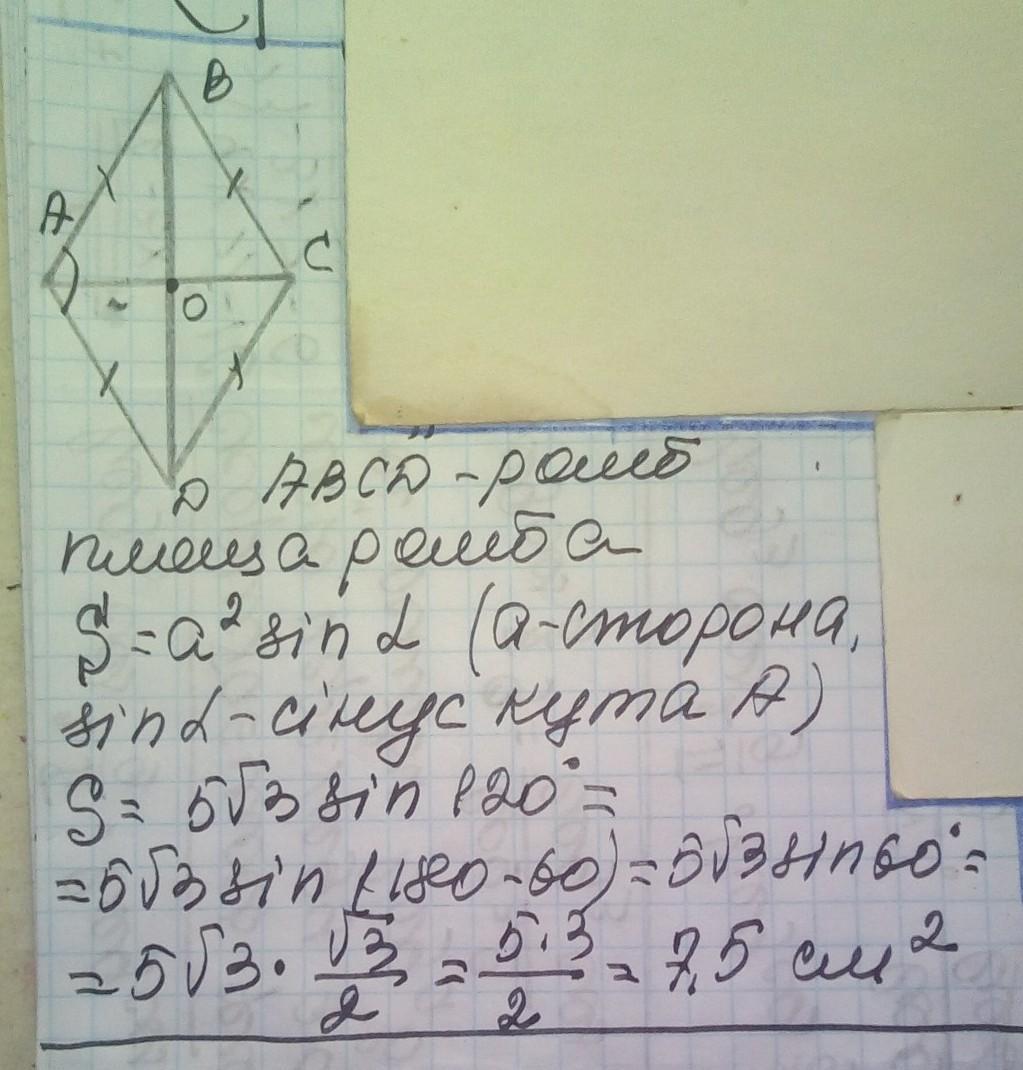 B
A
C
O
D
ABCD - ромб
площа ромба
S = a² sin α (а-сторона,
sin α - сінус кута А)
S = 5√3 sin 120° =
= 5√3 sin (180 - 60) = 5√3 sin 60° =
= 5√3 · √3/2 = 5·3/2 = 7,5 см²